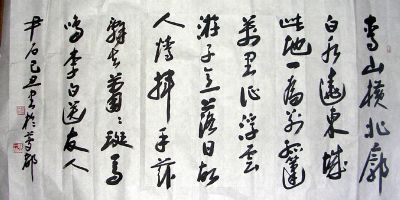 青山橫北郭
白水遶東城
此地一為別孤蓬
萬里征浮雲
游子意落日故
人情揮手茲
去蕭〻班馬
鳴李白送友人
尹石己丑書於蓉都